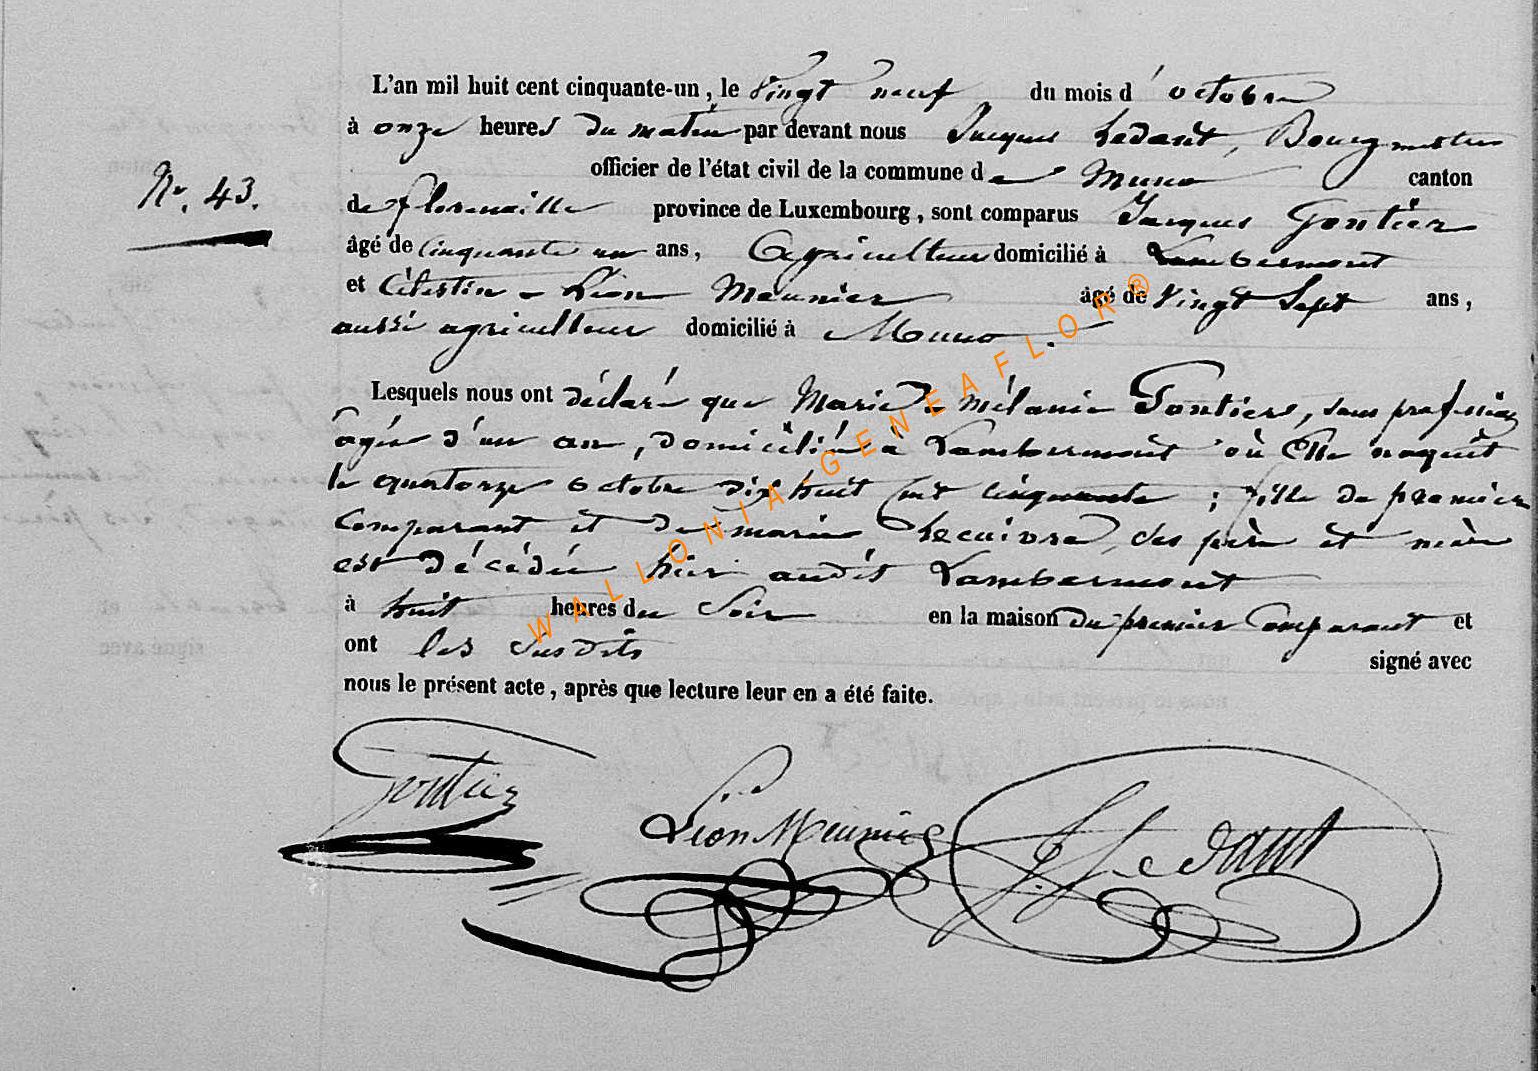 L'an mil huit cent cinquante-un, le Vingt neuf du mois d' octobre
à onze heures du matin par devant nous Jacques Ledant, Bourgmestre
officier de l'état civil de la commune de Muno canton
N°. 43.
de florenville province de Luxembourg, sont comparus Jacques Gontier
âgé de cinquante un ans, Agriculteur domicilié à Lambermont
et Célestin - Léon Meunier âgé de Vingt Sept ans,
aussi agriculteur domicilié à Muno.
Lesquels nous ont déclaré que Marie mélanie Gontier, sans profession
âgée d'un an, domiciliée à Lambermont où Elle naquit
le quatorze octobre dix huit cent cinquante ; fille du premier
Comparant et de marie Lecuivre, ses père et mère
est décédée hier audit Lambermont
à huit heures du Soir en la maison du premier Comparant et
ont les susdits signé avec
nous le présent acte, après que lecture leur en a été faite.
Gontier
Léon Meunier
J. Ledant
WALLONIA-GENEAFLOR®